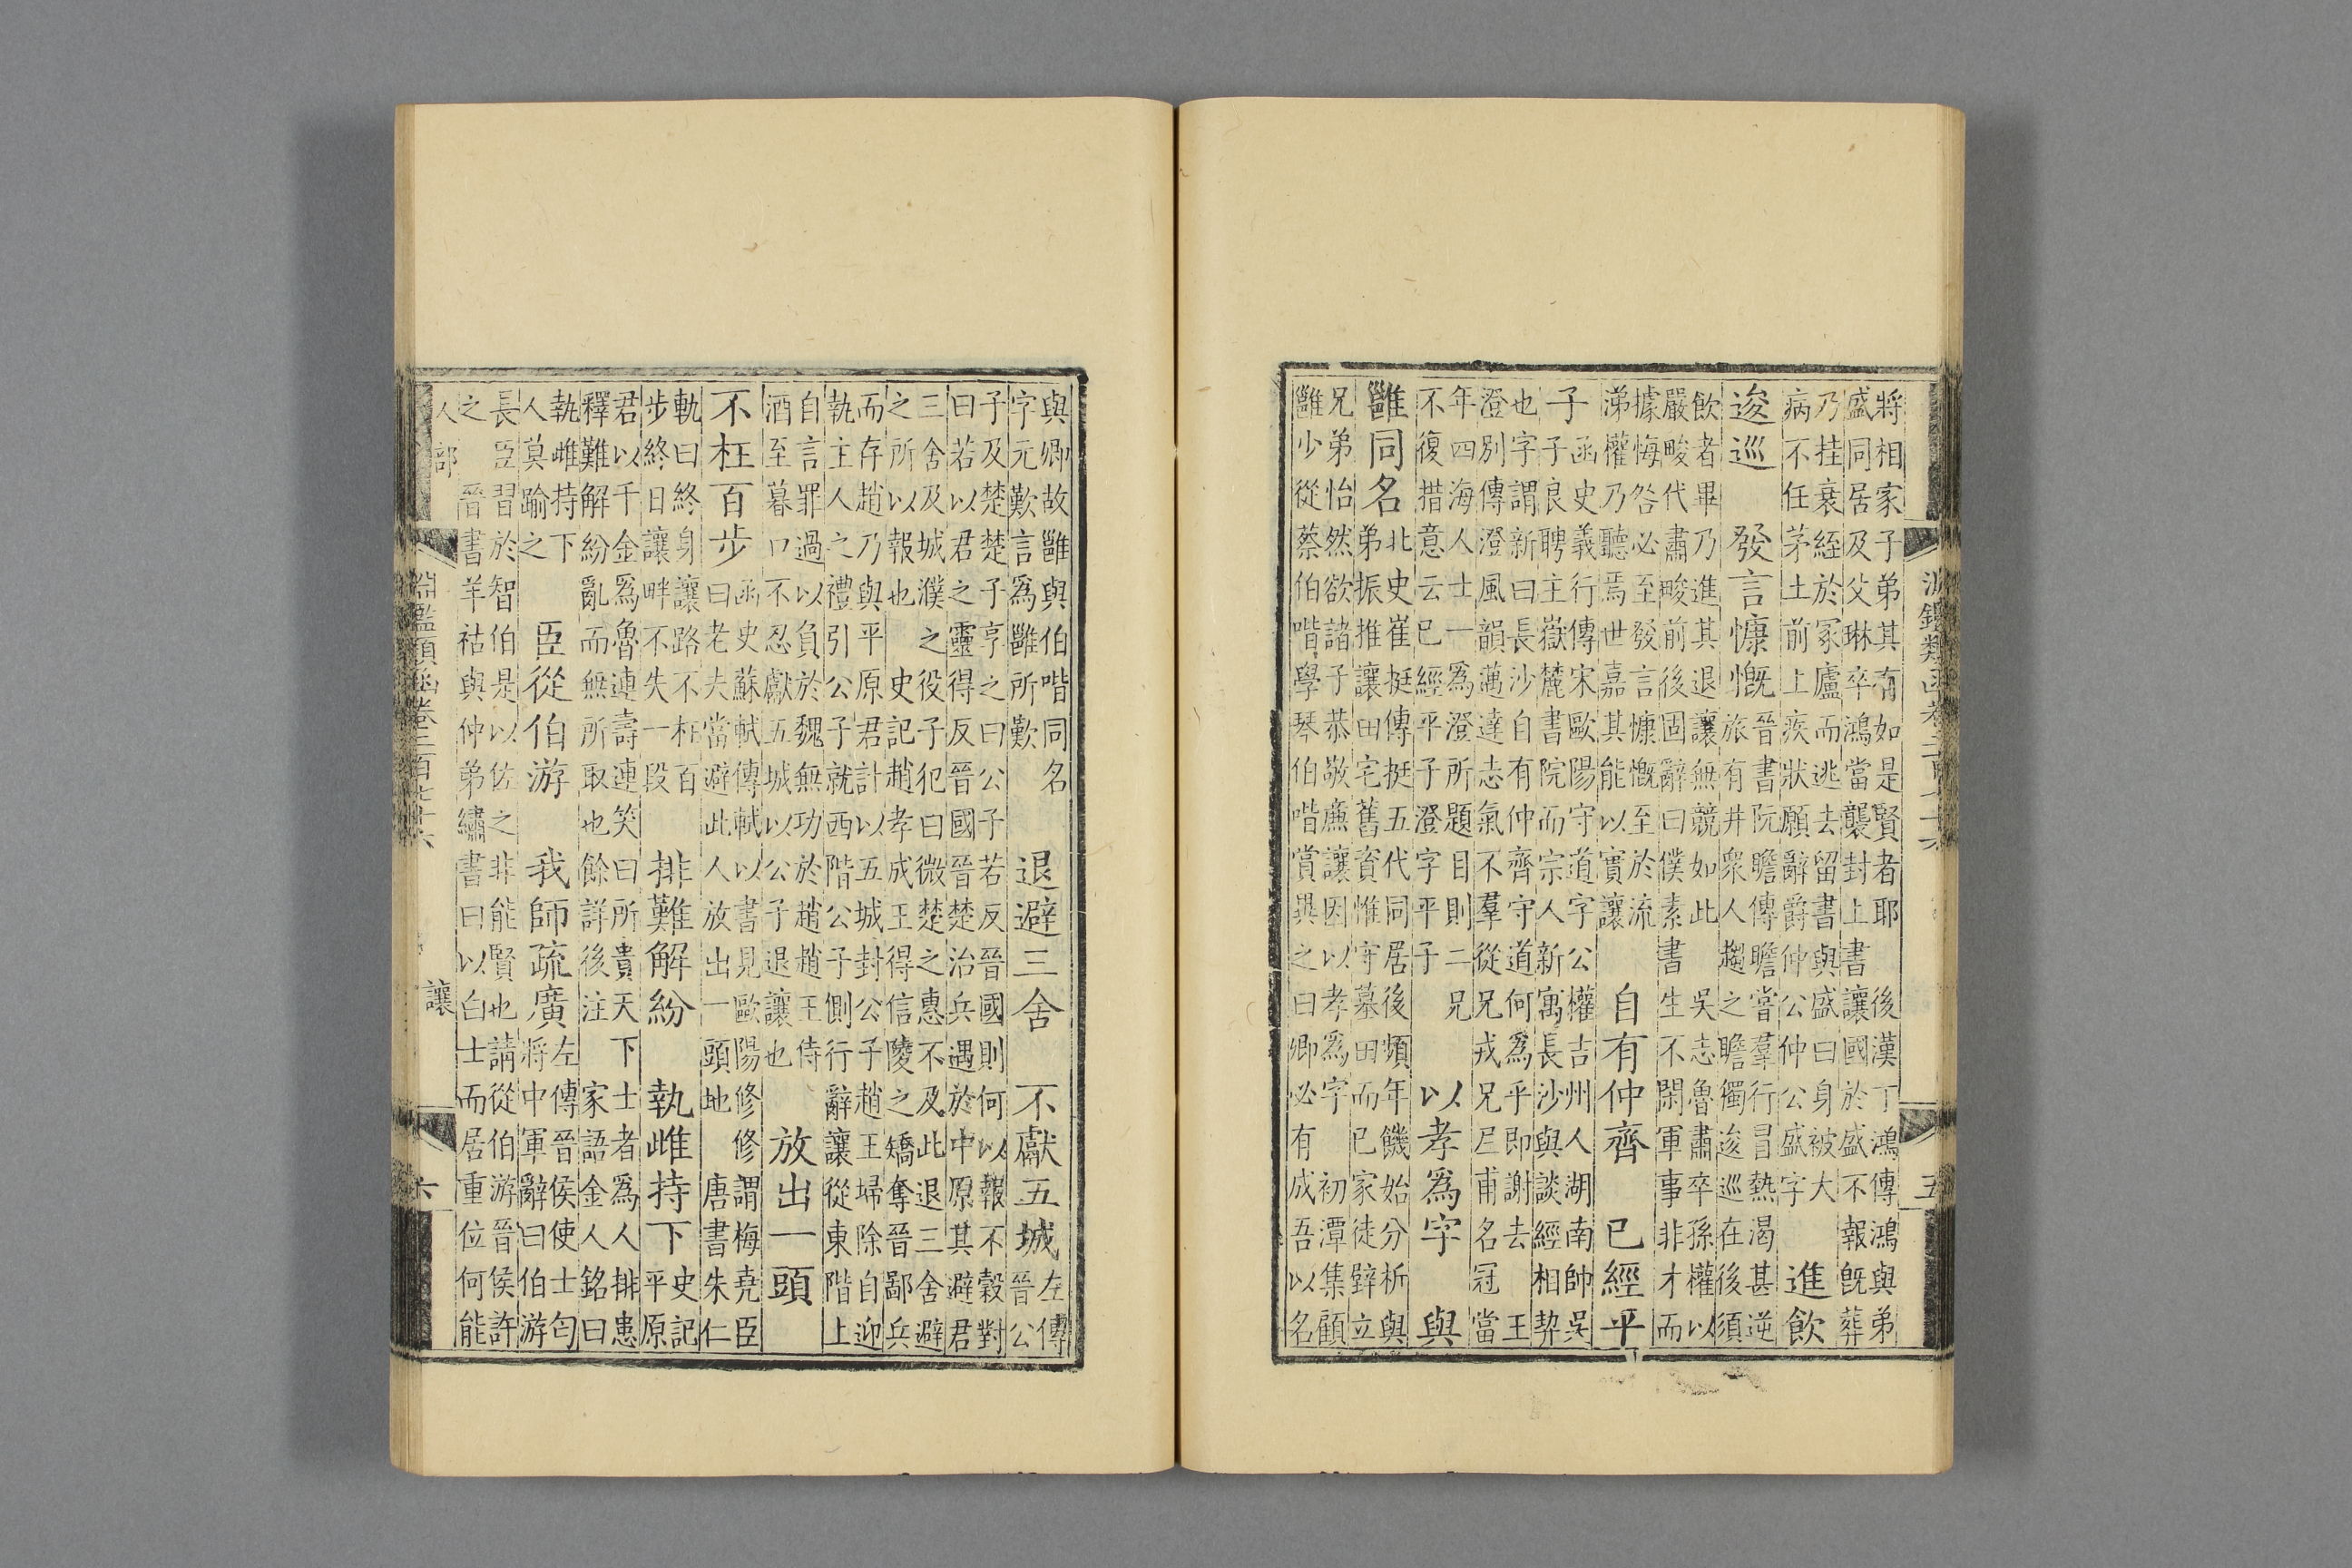 淵鑑類函卷二百七十六 五
將相家子弟其有如是賢者耶 後漢丁鴻傳鴻與弟
盛同居及父琳卒鴻當襲封上書讓國於盛不報既葬
乃挂衰絰於冢廬而逃去留書與盛曰身被大
病不任茅土前上疾狀願辭爵仲公仲公盛字
進飲
逡巡 發言慷慨
晉書阮瞻傳瞻嘗羣行冒熱渴甚逆
旅有井衆人趨之瞻獨逡巡在後須
飲者畢乃進其退讓無競如此 吳志魯肅卒孫權以
嚴畯代肅畯前後固辭曰僕素書生不閑軍事非才而
據悔咎必至發言慷慨至於流
涕權乃聽焉世嘉其能以實讓
自有仲齊 已經平
子
函史義行傳宋歐陽守道字公權吉州人湖南帥吳
子良聘主嶽麓書院而宗人新寓長沙與談經相契
也字謂新曰長沙自有仲齊守道何爲乎即謝去 王
澄別傳澄風韻邁達志氣不羣從兄戎兄尼甫名冠當
年四海人士一爲澄所題目則二兄
不復措意云已經平子澄字平子
以孝爲字 與
雝同名
北史崔挺傳挺五代同居後頻年饑始分析與
弟振推讓田宅舊資惟守墓田而已家徒壁立
兄弟怡然欲諸子恭敬亷讓因以孝爲字 初潭集顧
雝少從蔡伯喈學琴伯喈賞異之曰卿必有成吾以名
與卿故雝與伯喈同名
字元歎言爲雝所歎
退避三舍 不獻五城
左傳
晉公
子及楚楚子享之曰公子若反晉國則何以報不穀對
曰若以君之靈得反晉國晉楚治兵遇於中原其避君
三舍及城濮之役子犯曰微楚之惠不及此退三舍避
之所以報也 史記趙孝成王得信陵之矯奪晉鄙兵
而存趙乃與平原君計以五城封公子趙王埽除自迎
執主人之禮引公子就西階公子側行辭讓從東階上
自言罪過以負於魏無功於趙趙王侍
酒至暮口不忍獻五城以公子退讓也
放出一頭
不枉百步
函史蘇軾傳軾以書見歐陽修修謂梅堯臣
曰老夫當避此人放出一頭地 唐書朱仁
軌曰終身讓路不枉百
步終日讓畔不失一段
排難解紛 執雌持下
史記
平原
君以千金爲魯連壽連笑曰所貴天下士者爲人排患
釋難解紛亂而無所取也餘詳後注 家語金人銘曰
執雌持下
人莫踰之
臣從伯游 我師疏廣
左傳晉侯使士匄
將中軍辭曰伯游
長臣習於智伯是以佐之非能賢也請從伯游晉侯許
之 晉書羊祜與仲弟繡書曰以白士而居重位何能
人部 淵鑑類函卷二百七十六 讓 六